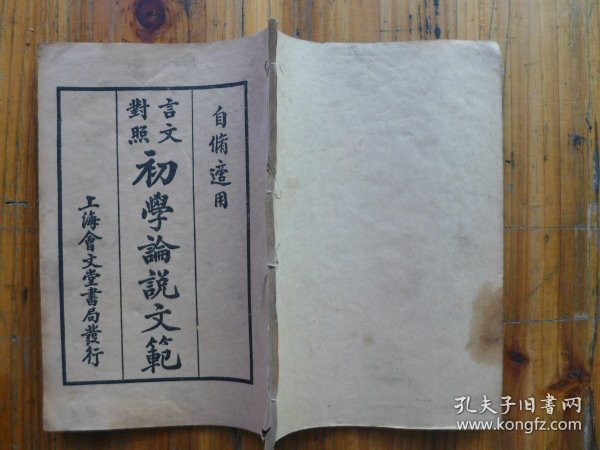 自脩適用
言文
對照
初學論說文範
上海會文堂書局發行
孔夫子旧书网
www.kongfz.com